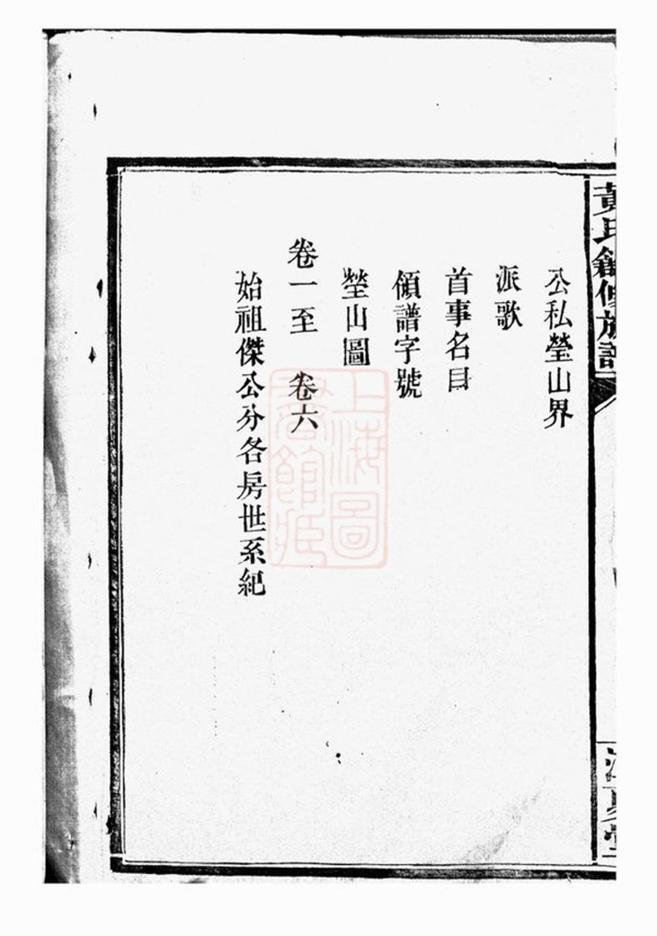 黃氏創修族譜
公私瑩山界
派歌
首事名目
領譜字號
塋山圖
卷一至 卷六
始祖傑公分各房世系紀
上海圖書館藏